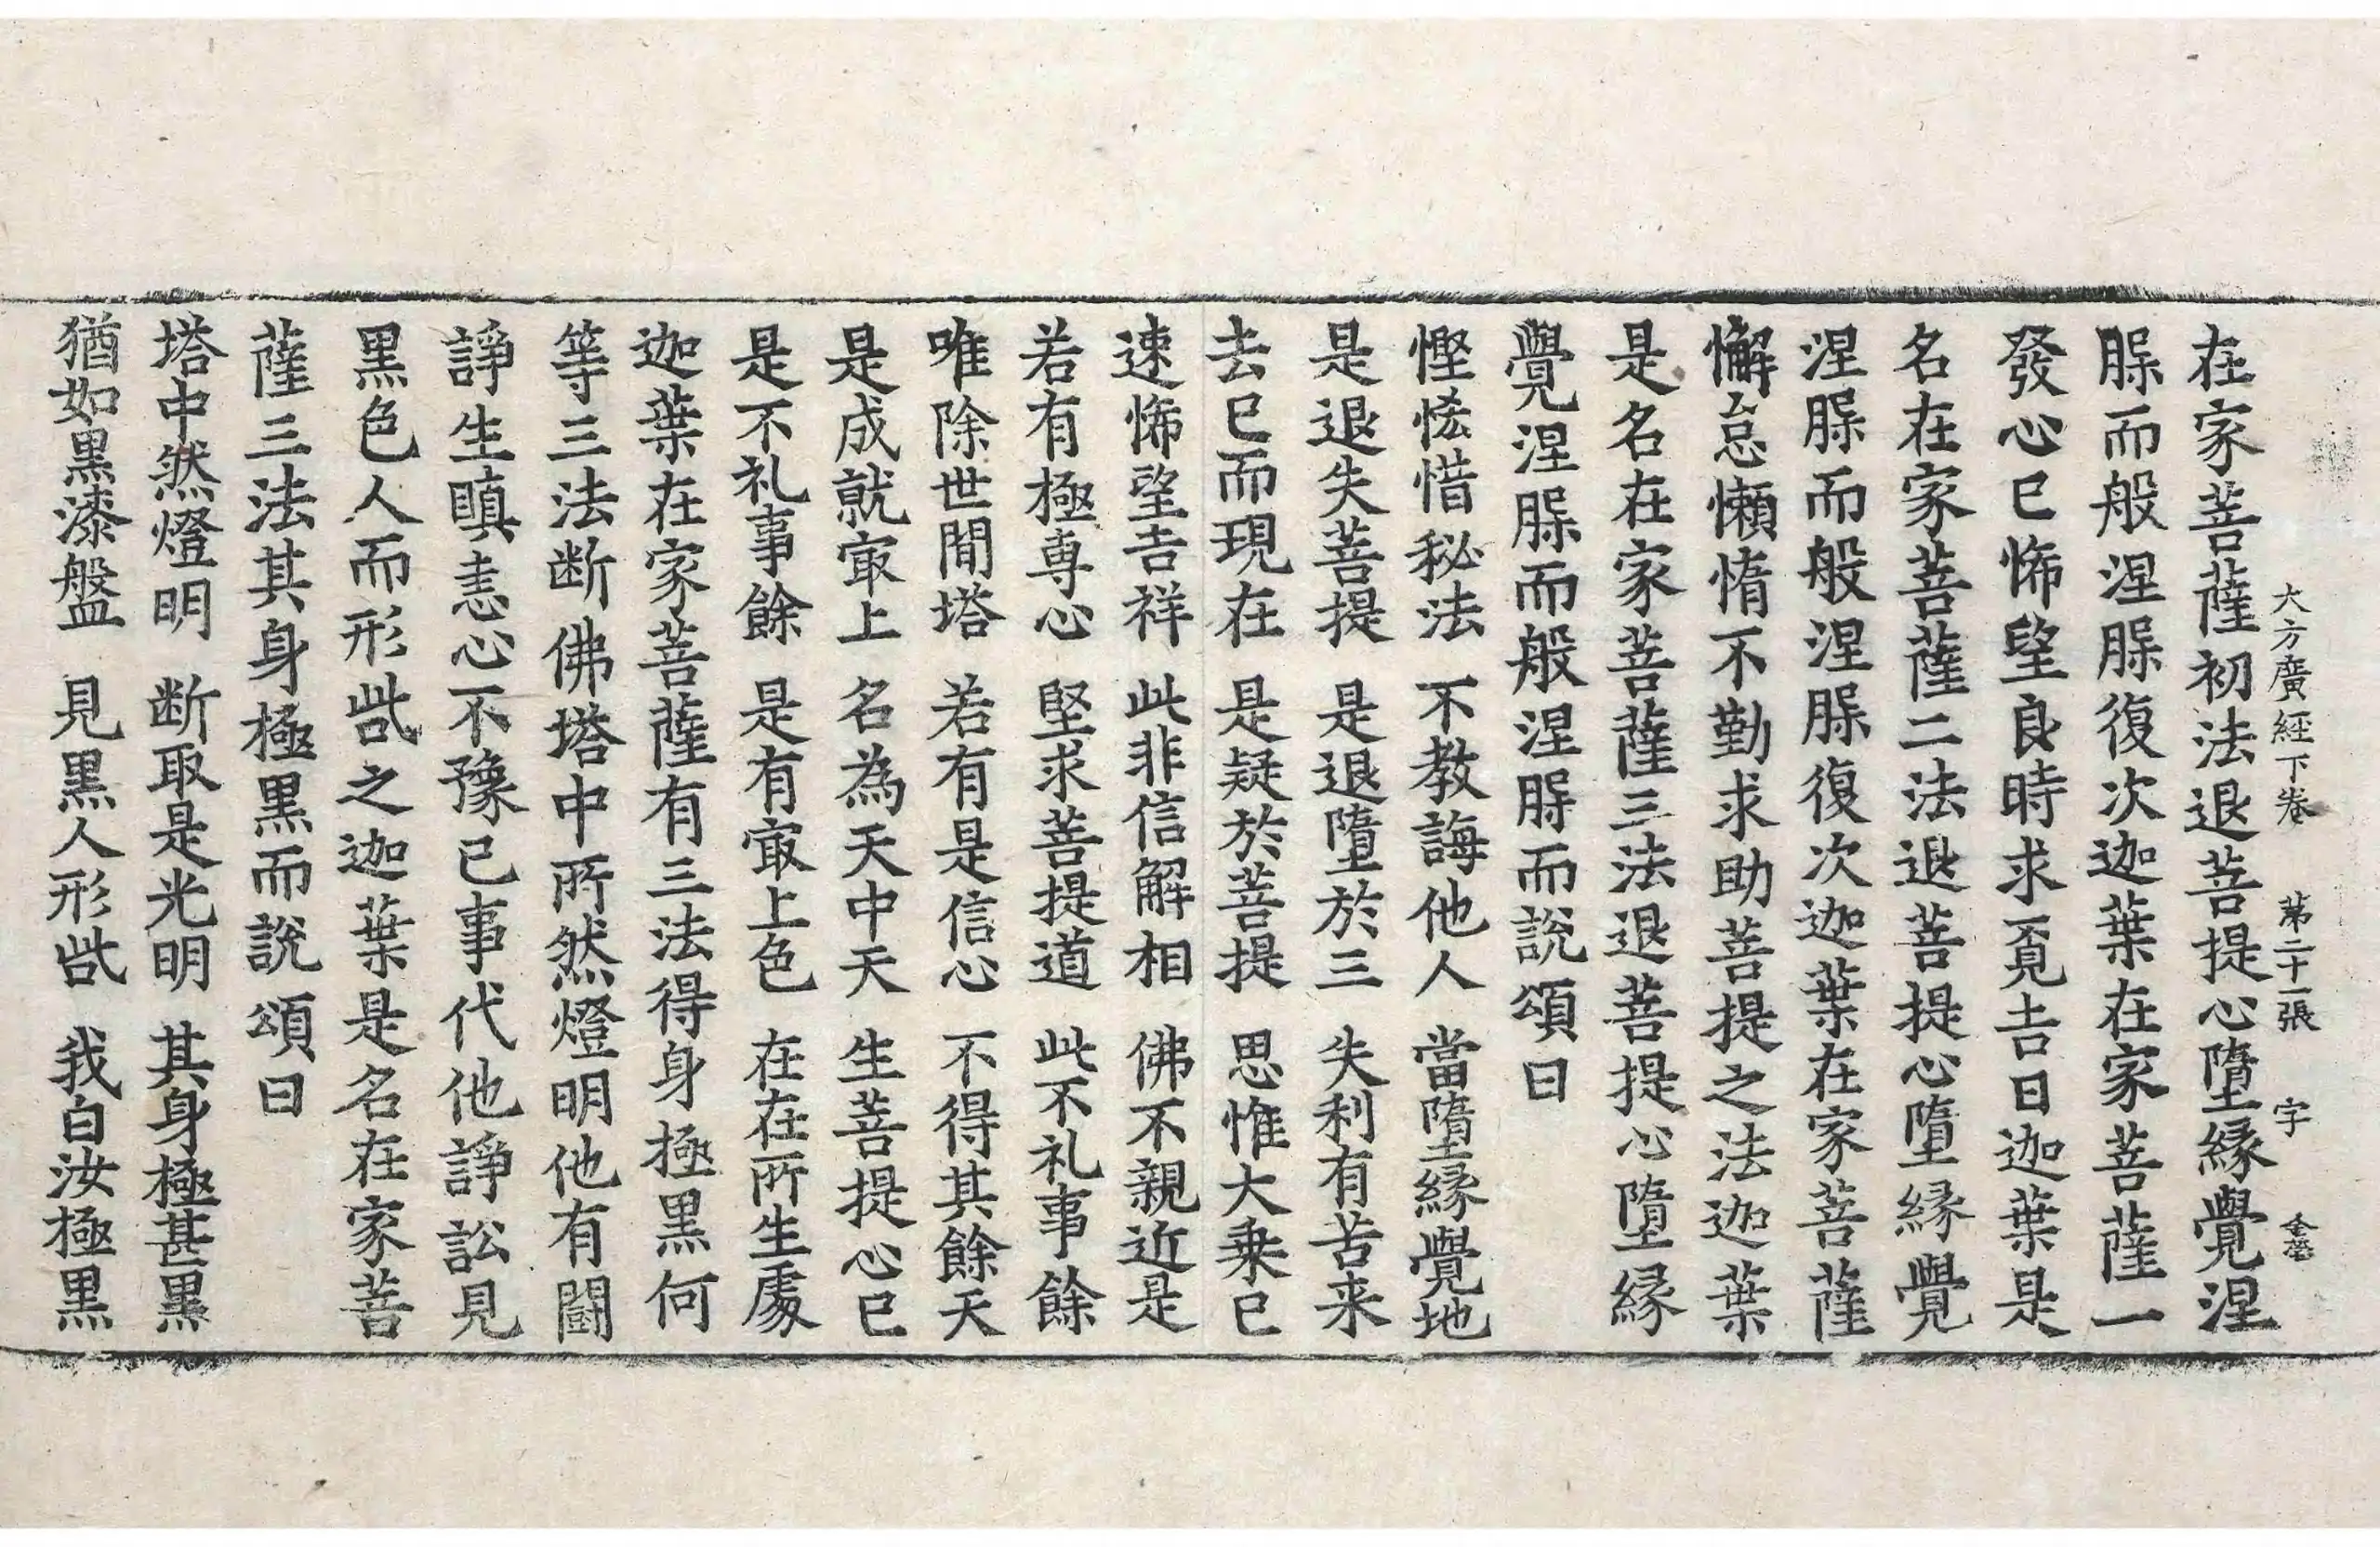 大方廣經下卷 第二十一張 字 金㽵
在家菩薩初法退菩提心墮縁覺涅
脲而般涅脲復次迦葉在家菩薩一
發心已悕望良時求覓吉日迦葉是
名在家菩薩二法退菩提心墮縁覺
涅脲而般涅脲復次迦葉在家菩薩
懈怠懶惰不勤求助菩提之法迦葉
是名在家菩薩三法退菩提心墮縁
覺涅脲而般涅脲而說頌曰
慳悋惜秘法 不教誨他人 當墮縁覺地
是退失菩提 是退墮於三 失利有苦来
去已而現在 是疑於菩提 思惟大乗已
速悕望吉祥 此非信解相 佛不親近是
若有極専心 堅求菩提道 此不礼事餘
唯除世間塔 若有是信心 不得其餘天
是成就㝡上 名為天中天 生菩提心已
是不礼事餘 是有㝡上色 在在所生䖏
迦葉在家菩薩有三法得身極黒何
等三法断佛塔中所然燈明他有闘
諍生瞋恚心不豫已事代他諍訟見
黒色人而形呰之迦葉是名在家菩
薩三法其身極黒而說頌曰
塔中然燈明 断取是光明 其身極甚黒
猶如黒漆盤 見黒人形呰 我白汝極黒